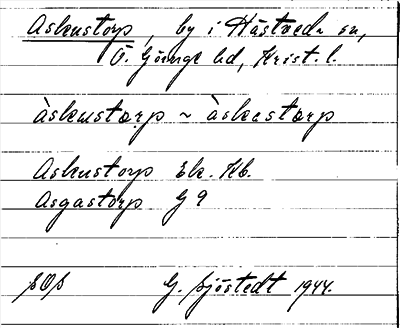 Askustorp, by i Hästveda sn,
Ö. Göinge hd, Krist. l.
àskustærp ~ àskastærp
Askustorp Ek. Kb.
Asgastorp G 9
SOS G. Sjöstedt 1944.